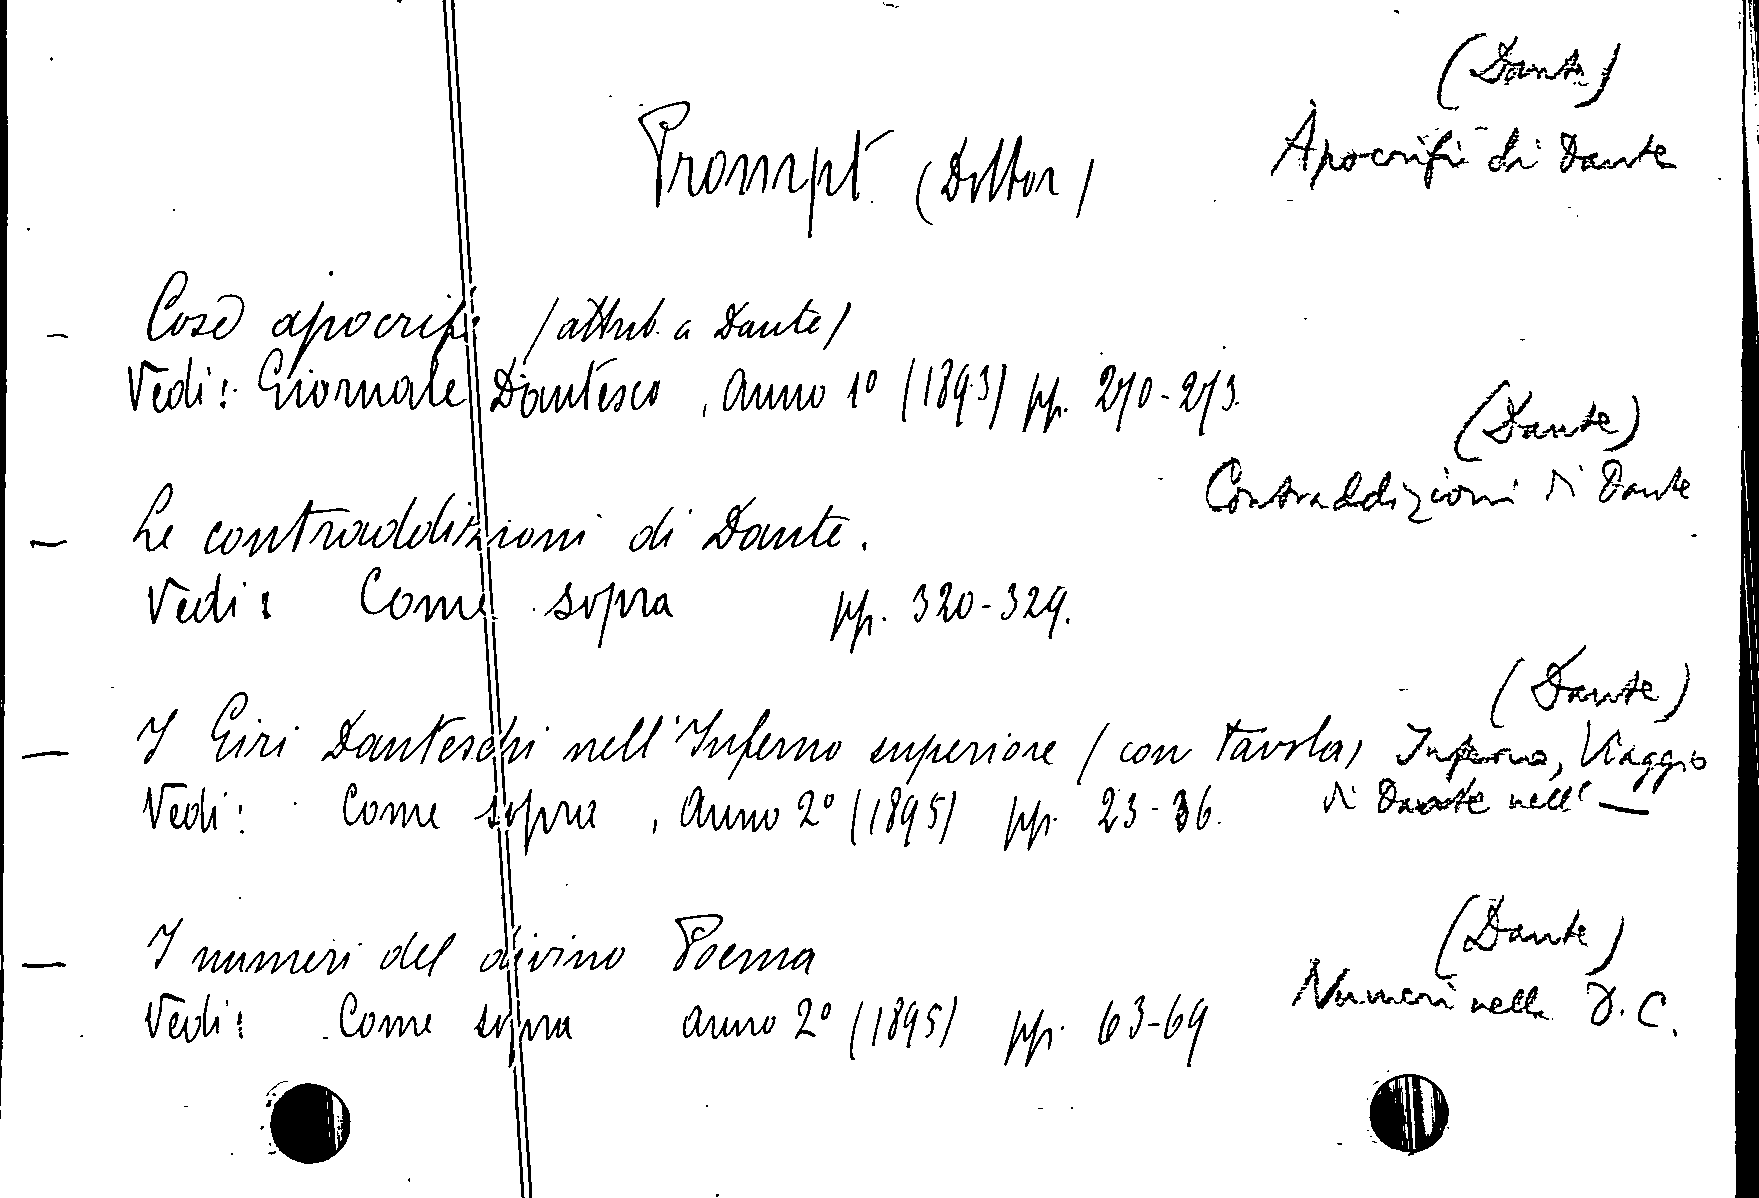 (Dante)
Prompt (Dottor)
Apocrifi di Dante
— Cose apocrife (attrib. a Dante)
Vedi: Giornale Dantesco, Anno 1º (1893) pp. 270-273.
(Dante)
Contraddizioni di Dante
— Le contraddizioni di Dante.
Vedi: Come sopra pp. 320-329.
(Dante)
— I Giri Danteschi nell'Inferno superiore (con tavola)
Inferno, Viaggio
Vedi: Come sopra, Anno 2º (1895) pp. 23-36.
di Dante nell' —
(Dante)
— I numeri del divino Poema
Numeri nella D. C.
Vedi: Come sopra Anno 2º (1895) pp. 63-69